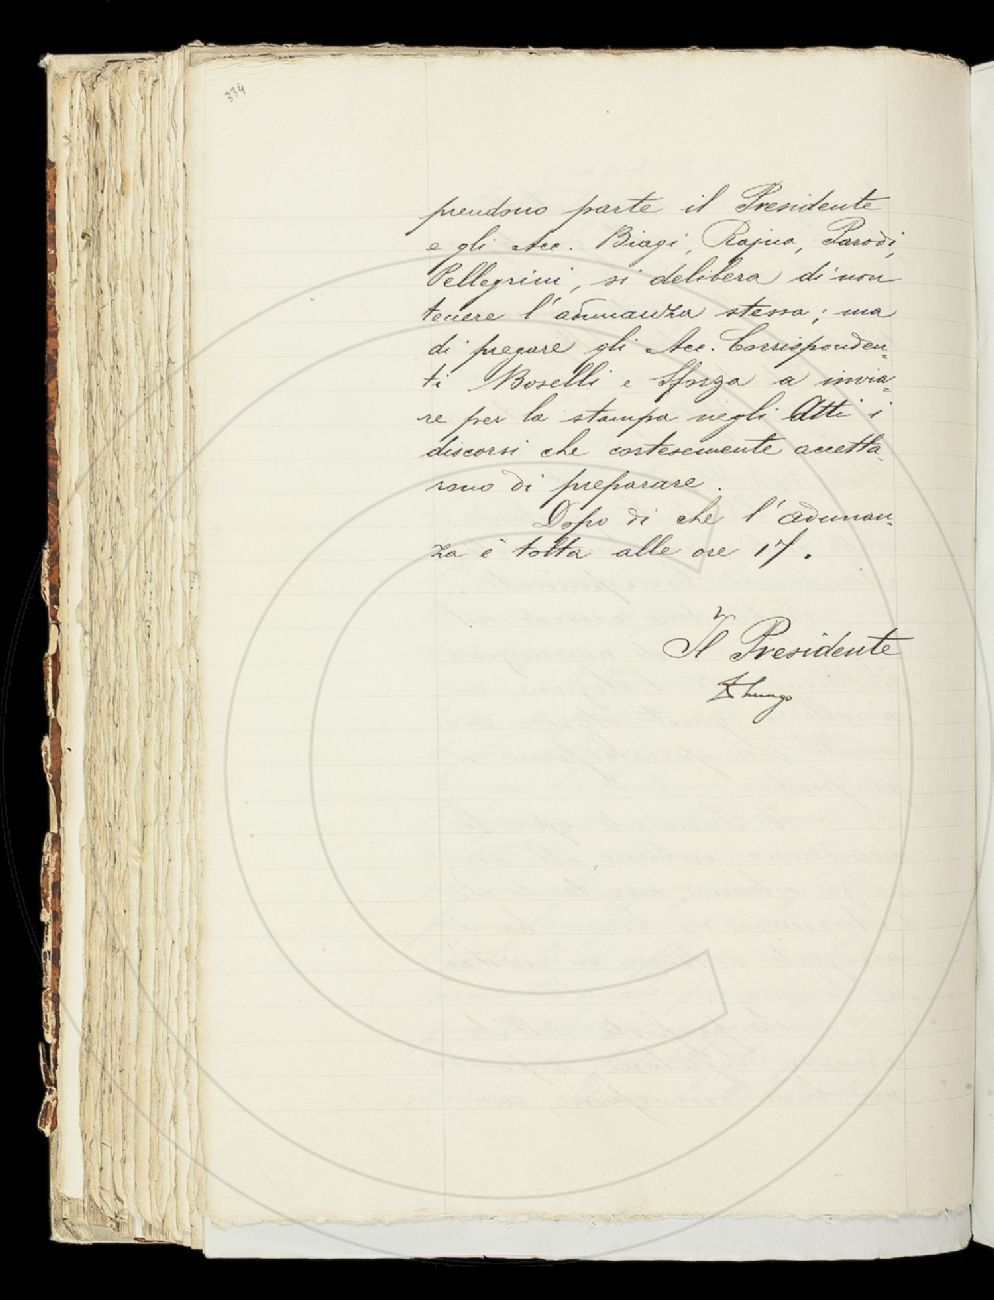 334
prendono parte il Presidente
e gli Acc. Biagi, Rajna, Parodi,
Pellegrini, si delibera di non
tenere l'adunanza stessa; ma
di pregare gli Acc. Corrisponden=
ti Boselli e Sforza a invia=
re per la stampa negli Atti i
discorsi che cortesemente accetta=
rono di preparare.
Dopo di che l'adunan=
za è tolta alle ore 17.
Il Presidente